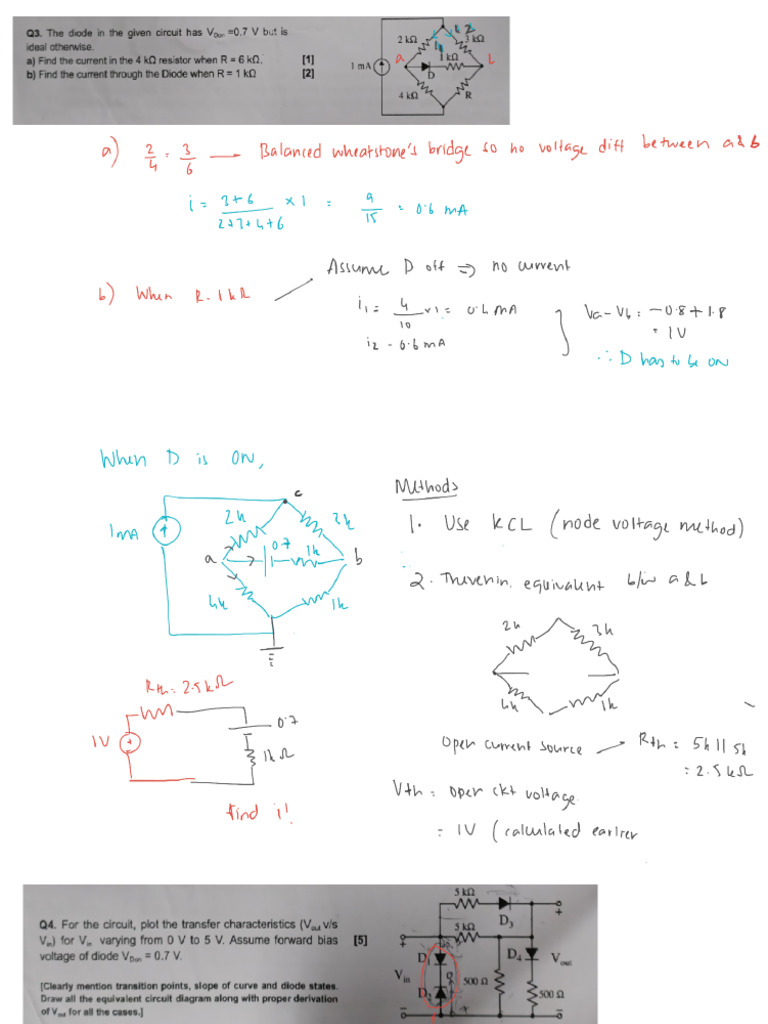 Q3. The diode in the given circuit has VDon =0.7 V but is
ideal otherwise.
a) Find the current in the 4 kΩ resistor when R = 6 kΩ. [1]
b) Find the current through the Diode when R = 1 kΩ [2]
2 kΩ
3 kΩ
i1
i2
1 kΩ
1 mA
a
b
D
4 kΩ
R
a) 2/4 = 3/6 — Balanced wheatstone's bridge so no voltage diff between a & b
i = 3+6/2+3+4+6 × 1 = 9/15 = 0.6 mA
Assume D off ⇒ no current
b) When R = 1kΩ
i1 = 4/10 × 1 = 0.4 mA
i2 = 0.6 mA
Va - Vb = -0.8 + 1.8
= 1V
∴ D has to be ON
When D is ON,
c
2k
3k
1mA
a
0.7
1k
b
4k
1k
Methods
1. Use KCL (node voltage method)
2. Thevenin equivalent b/w a & b
2k
3k
4k
1k
Open current source → Rth = 5k || 5k
= 2.5kΩ
Vth = open ckt voltage
= 1V (calculated earlier
Rth = 2.5kΩ
1V
0.7
1kΩ
find i!
Q4. For the circuit, plot the transfer characteristics (Vout v/s
Vin) for Vin varying from 0 V to 5 V. Assume forward bias [5]
voltage of diode VDon = 0.7 V.
[Clearly mention transition points, slope of curve and diode states.
Draw all the equivalent circuit diagram along with proper derivation
of Vout for all the cases.]
5 kΩ
D3
5 kΩ
D1
D4
Vout
Vin
500 Ω
D2
500 Ω